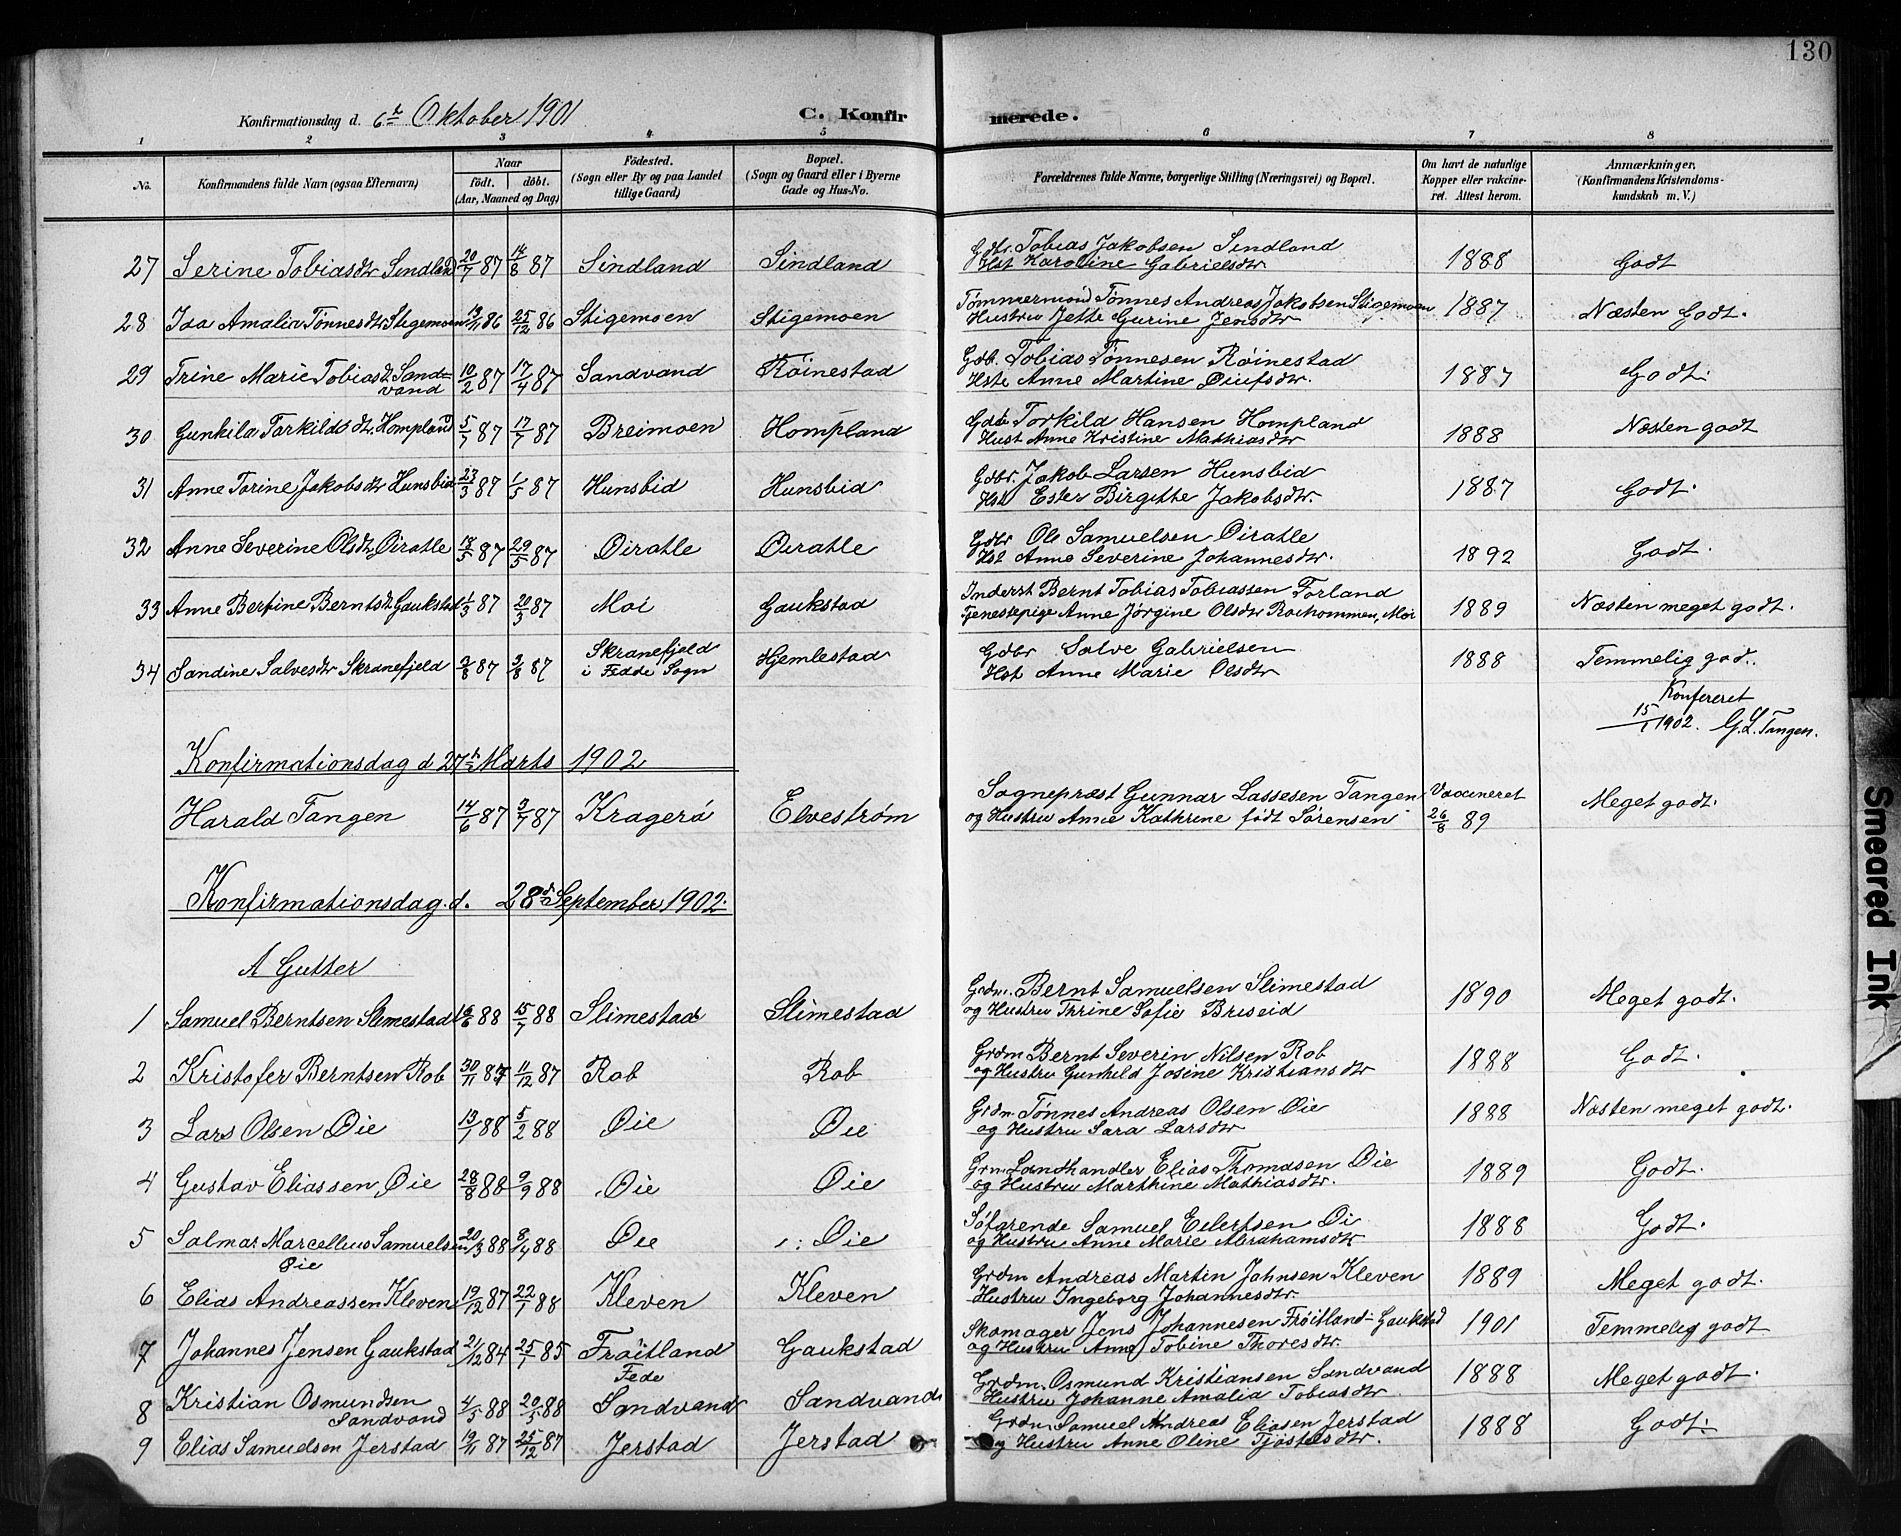 130
Konfirmationsdag d. 6te Oktober 1901 C. Konfirmerede.
1 2 3 4 5 6 7 8
No. Konfirmandens fulde Navn (ogsaa Efternavn) Naar født. døbt. (Aar, Maaned og Dag) Fødested. (Sogn eller By og paa Landet tillige Gaard) Bopæl. (Sogn og Gaard eller i Byerne Gade og Hus-No. Forældrenes fulde Navne, borgerlige Stilling (Næringsvei) og Bopæl. Om havt de naturlige Kopper eller vakcineret. Attest herom. Anmærkninger. (Konfirmandens Kristendomskundskab m. V.)
27 Serine Tobiasdtr Sindland 20/7 87 14/8 87 Sindland Sindland Gdbr. Tobias Jakobsen Sindland Hst Karoline Gabrielsdtr 1888 Godt
28 Ida Amalia Tønnesdtr Stigemoen 19/11 86 25/12 86 Stigemoen Stigemoen Tømmermand Tønnes Andreas Jakobsen Stigemoen Hustru Jette Gurine Jensdtr 1887 Næsten Godt.
29 Trine Marie Tobiasdt. Sandvand 10/2 87 17/4 87 Sandvand Røinestad Gdb. Tobias Tønnesen Røinestad Hste Anne Martine Duifsdtr. 1887 Godt.
30 Gunhila Torkildsdt. Hompland 5/7 87 17/7 87 Breimoen Hompland Gdbr Torkild Hansen Hompland Hust Anne Kristine Mathiasdtr 1888 Næsten godt
31 Anne Torine Jakobsdtr Hunsbid 23/3 87 1/5 87 Hunsbid Hunsbid Gdbr. Jakob Larsen Hunsbid Hst Ester Birgitte Jakobsdtr. 1887 Godt.
32 Anne Severine Olsdt. Øiratle 18/5 87 29/5 87 Øiratle Øiratle Gdbr Ole Samuelsen Øiratle Hst Anne Severine Johannesdtr. 1892 Godt.
33 Anne Bertine Berntsdt. Gaukstad 1/3 87 20/3 87 Moi Gaukstad Inderst Bernt Tobias Tobiassen Forland Tjenestepige Anne Jørgine Olsdtr Roihommen, Moi 1889 Næsten meget godt.
34 Sandine Salvesdtr Skranefjeld 2/8 87 3/8 87 Skranefjeld i Fedde Sogn Hjemlestad Gdbr Salve Gabrielsen Hst Anne Marie Olsdtr 1888 Temmelig god..
Konfereret
15/1 1902. G. L. Tangen.
Konfirmationsdag d 27de Marts 1902
Harald Tangen 14/6 87 3/7 87 Kragerø Elvestrøm Sognepræst Gunnar Lassesen Tangen og Hustru Anne Kathrine født Sørensen Vaccineret 26/8 89 Meget godt.
Konfirmationsdag. d. 28de September 1902.
A Gutter
1 Samuel Berntsen Slimestad 16/6 88 15/7 88 Slimestad Slimestad Grdm. Bernt Samuelsen Slimestad og Hustru Thrine Sofie Briseid 1890 Meget godt.
2 Kristofer Berntsen Rob 30/11 87 11/12 87 Rob Rob Grdm Bernt Severin Nilsen Rob og Hustru Gunhild Josine Kristiansdtr 1888 Godt.
3 Lars Olsen Øie 13/1 88 5/2 88 Øie Øie Grdm. Tønnes Andreas Olsen Øie og Hustru Sara Larsdtr 1888 Næsten meget godt.
4 Gustav Eliassen Øie 28/8 88 9/9 88 Øie Øie Grm. Landhandler Elias Thomasen Øie og Hustru Marthine Mathiasdtr. 1889 Godt.
5 Salmar Marcellius Samuelsen Øie 20/3 88 8/4 88 Øie Øie Søfarende Samuel Eilertsen Øi og Hustru Anne Marie Abrahamsdtr 1888 Godt.
6 Elias Andreassen Kleven 19/12 87 22/1 88 Kleven Kleven Grdm Andreas Martin Jahnsen Kleven Hustru Ingeborg Johannesdtr 1889 Meget godt.
7 Johannes Jensen Gaukstad 21/12 84 25/1 85 Frøitland Fede Gaukstad Skomager Jens Johannesen Frøitland-Gaukstad og Hustru Anne Tobine Thoresdtr. 1901 Temmelig godt
8 Kristian Osmundsen Sandvand 4/5 88 20/5 88 Sandvand Sandvand Grdm. Osmund Kristiansen Sandvand Hustru Johanne Amalia Tobiasdtr 1888 Meget godt.
9 Elias Samuelsen Jerstad 19/11 87 25/12 87 Jerstad Jerstad Grdm Samuel Andreas Eliasen Jerstad og Hustru Anne Oline Tjøstelsdtr. 1888 Godt.
Smeared Ink